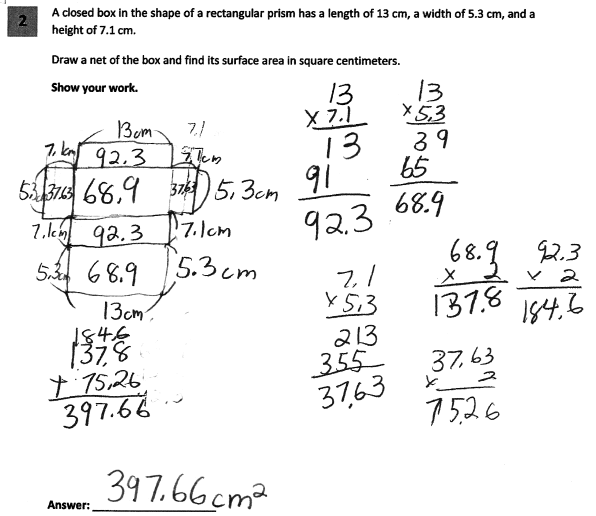 2
A closed box in the shape of a rectangular prism has a length of 13 cm, a width of 5.3 cm, and a
height of 7.1 cm.
Draw a net of the box and find its surface area in square centimeters.
Show your work.
13cm 7.1
7.1cm 92.3 7.1cm
5.3cm 37.63 68.9 37.63 5.3cm
7.1cm 92.3 7.1cm
5.3cm 68.9 5.3cm
13cm
184.6
137.8
+ 75.26
397.66
13
× 7.1
13
91
92.3
13
× 5.3
39
65
68.9
7.1
× 5.3
213
355
37.63
68.9
× 2
137.8
92.3
× 2
184.6
37.63
× 2
75.26
Answer: 397.66 cm²